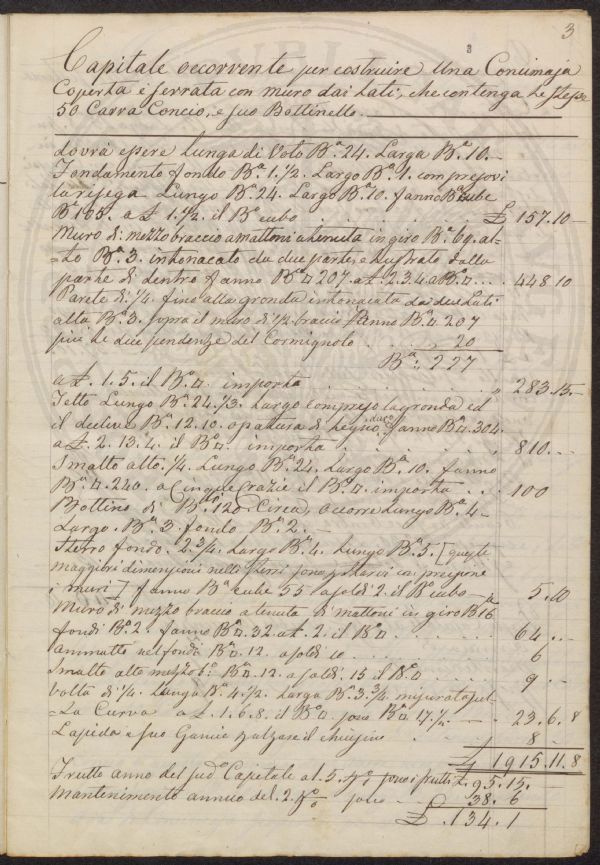 3
Capitale occorrente per costruire Una Concimaja
Coperta e serrata con muro dai Lati, che contenga le stesse
50 Carra Concio, e suo Bottinello.
dovrà essere Lunga di Voto B.ª 24. Larga B.ª 10.
Fondamento fondo B.ª 1.½ Largo B.ª 1. compresovi
la risega Lungo B.ª 24. Largo B.ª 10. fanno B.ª cube
B.ª 105. a £ 1.½ il B.º cubo . . . . £ 157.10
Muro di mezzo braccio a mattoni a tenuta in giro B.ª 69. al-
-to B.ª 3. intonacato da due parti, e lustrato dalla
parte di dentro fanno B.ª □ 207 a £. 2.3.4. a B.ª □ . . 448.10
Parete di ¼ fino alla gronda intonacata da due Lati
alta B.ª 3. sopra il muro di ½ braccio fanno B.ª □ 207
più le due pendenze del Cormignolo . . . 20
B.ª 227
a £. 1.5. il B.º □. importa . . . " 283.15.
Tetto Lungo B.ª 24.⅓. Largo compreso la gronda ed
il declive B.ª 12.10. a palura di Legno fanno B.ª □. 304.
a £. 2.13.4. il B.º □. importa . . . " 810.
Smalto alto ¼. Lungo B.ª 24. Largo B.ª 10. fanno
B.ª □. 240. a Cinque Crazie il B.º □. importa . . . 100
Bottino di B.ªⁱ 120. Circa, occorre Lungo B.ª 4
Largo. B.ª 3. fondo B.ª 2.
Sterro fondo. 2.¾. Largo B.ª 4. Lungo B.ª 5. [queste
maggiori dimensioni nelli sterri sono p starvi
i muri] fanno B.ª cube 55 a soldi 2. il B.º cubo " 5.10
Muro di mezzo braccio a tenuta di mattoni in giro B. 16
fondi B.ª 2. fanno B.ª □. 32. a £. 2. il B.º □ . . . 64.
Ammatto. nel fondo B.ª □. 12. a soldi 10 . . . 6
Smalto alto mezzo b.º B.ª □. 12. a soldi. 15 il B.º □ . . . 9
Volta di ¼. Lunga B.ª 4.½. Larga B.ª 3.¾ misurata sul-
-la Curva a £. 1.6.8. il B.º □ sono B.ª □ 17.½ 23.6.8
Lapida e suo Gancio p alzare il chiusino . . 8
£ 1915.11.8
Frutto anno del sud.º Capitale al. 5. p % sono i frutti £. 95.15.
Mantenimento annuo del. 2. p % sono . . 38.6
£. 134.1